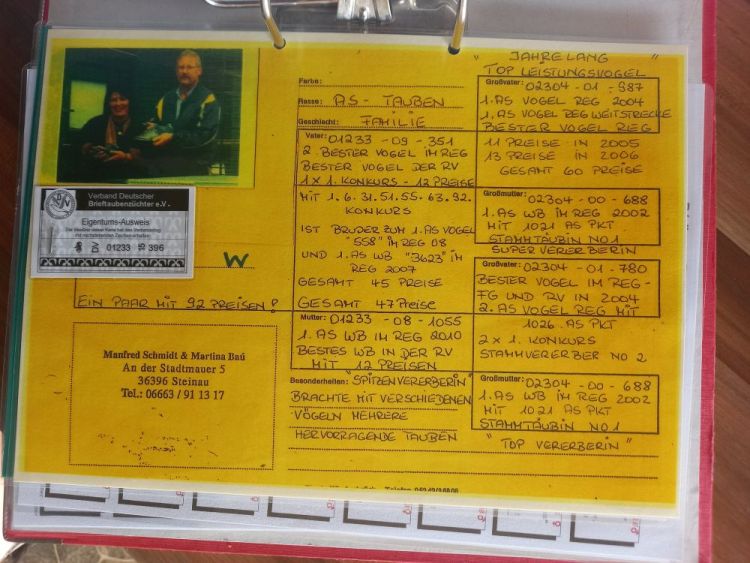 Verband Deutscher
Brieftaubenzüchter e.V.
Eigentums-Ausweis
01233 396
W
EIN PAAR MIT 92 PREISEN!
Manfred Schmidt & Martina Baú
An der Stadtmauer 5
36396 Steinau
Tel.: 06663 / 91 13 17
Farbe:
Rasse: AS - TAUBEN
Geschlecht: FAMILIE
Vater: 01233 - 09 - 351
2. BESTER VOGEL IM REG
BESTER VOGEL DER RV
1 x 1. KONKURS - 12 PREISE
MIT 1. 6. 31. 51. 55. 63. 92.
KONKURS
IST BRUDER ZUM 1. AS VOGEL
"558" IM REG 08
UND 1. AS WB "3623" IM
REG 2007
GESAMT 45 PREISE
GESAMT 47 Preise
Mutter: 01233 - 08 - 1055
1. AS WB IM REG 2010
BESTES WB IN DER RV
MIT 12 PREISEN
Besonderheiten: "SPITZENVERERBERIN"
BRACHTE MIT VERSCHIEDENEN
VÖGELN MEHRERE
HERVORRAGENDE TAUBEN
"JAHRELANG
TOP LEISTUNGSVOGEL"
Großvater: 02304 - 01 - 987
1. AS VOGEL REG 2004
1. AS VOGEL REG WEITSTRECKE
BESTER VOGEL REG
11 PREISE IN 2005
13 PREISE IN 2006
GESAMT 60 PREISE
Großmutter: 02304 - 00 - 688
1. AS WB IM REG 2002
MIT 1021 AS PKT
STAMMTÄUBIN NO 1
SUPERVERERBERIN
Großvater: 02304 - 01 - 780
BESTER VOGEL IM REG-
FG UND RV IN 2004
2. AS VOGEL REG MIT
1026. AS PKT
2 x 1. KONKURS
STAMMVERERBER NO 2
Großmutter: 02304 - 00 - 688
1. AS WB IM REG 2002
MIT 1021 AS PKT
STAMMTÄUBIN NO 1
"TOP VERERBERIN"